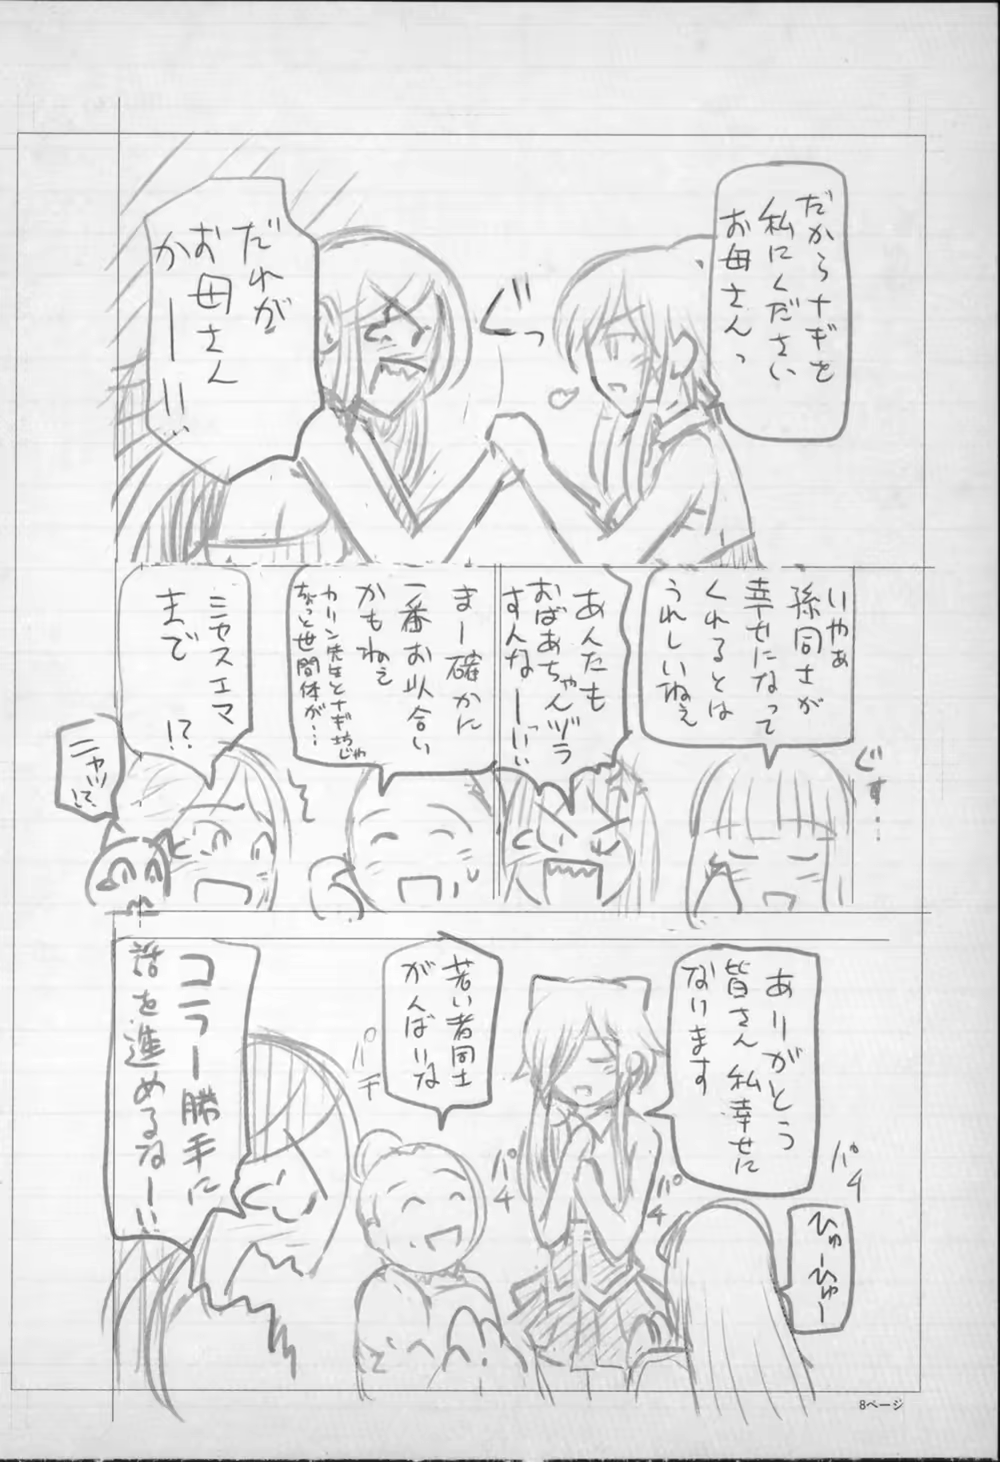 だからナギを
私にください
お母さんっ
ぐっ
だれが
お母さん
かーー!!
いやぁ
孫同士が
幸せになって
くれるとは
うれしいねぇ
ぐす…
あんたも
おばあちゃんヅラ
すんなーっ!!
まー確かに
一番お似合い
かもねぇ
カリン先生とナギちゃんじゃ
ちょっと世間体が…
ミヤスエマ
まで
!?
ニャッ!?
ありがとう
皆さん私幸せに
なります
パチ
パチ
パチ
ひゅーひゅー
若い者同士
がんばりな
パチ
コラー勝手に
話を進めるなー!!
8ページ